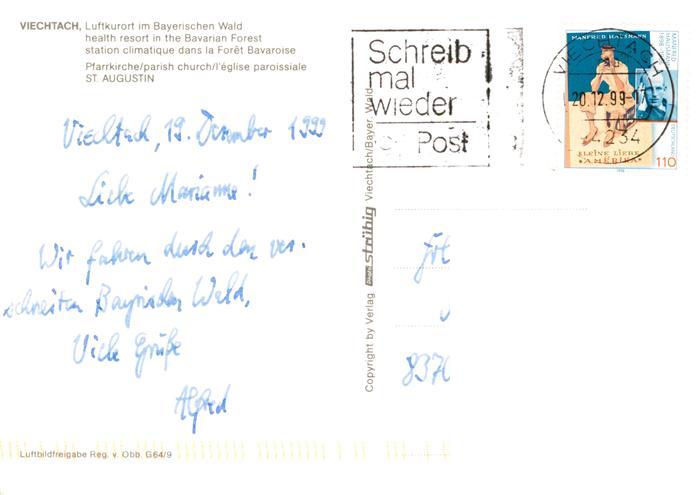 VIECHTACH, Luftkurort im Bayerischen Wald
health resort in the Bavarian Forest
station climatique dans la Forêt Bavaroise
Pfarrkirche/parish church/l'église paroissiale
ST. AUGUSTIN
Viechtach, 19. Dezember 1999
Liebe Marianne!
Wir fahren durch den ver-
schneiten Bayrischen Wald,
Viele Grüße
Alfred
Luftbildfreigabe Reg. v. Obb. G64/9
Copyright by Verlag strühig Viechtach/Bayer. Wald
Schreib
mal
wieder
Post
VIECHTACH
20.12.99-17
234
MANFRED HAUSMANN
MANFRED HAUSMANN
1898-1986
DEUTSCHLAND
KLEINE LIEBE
ZU AMERIKA
110
Frl
8370